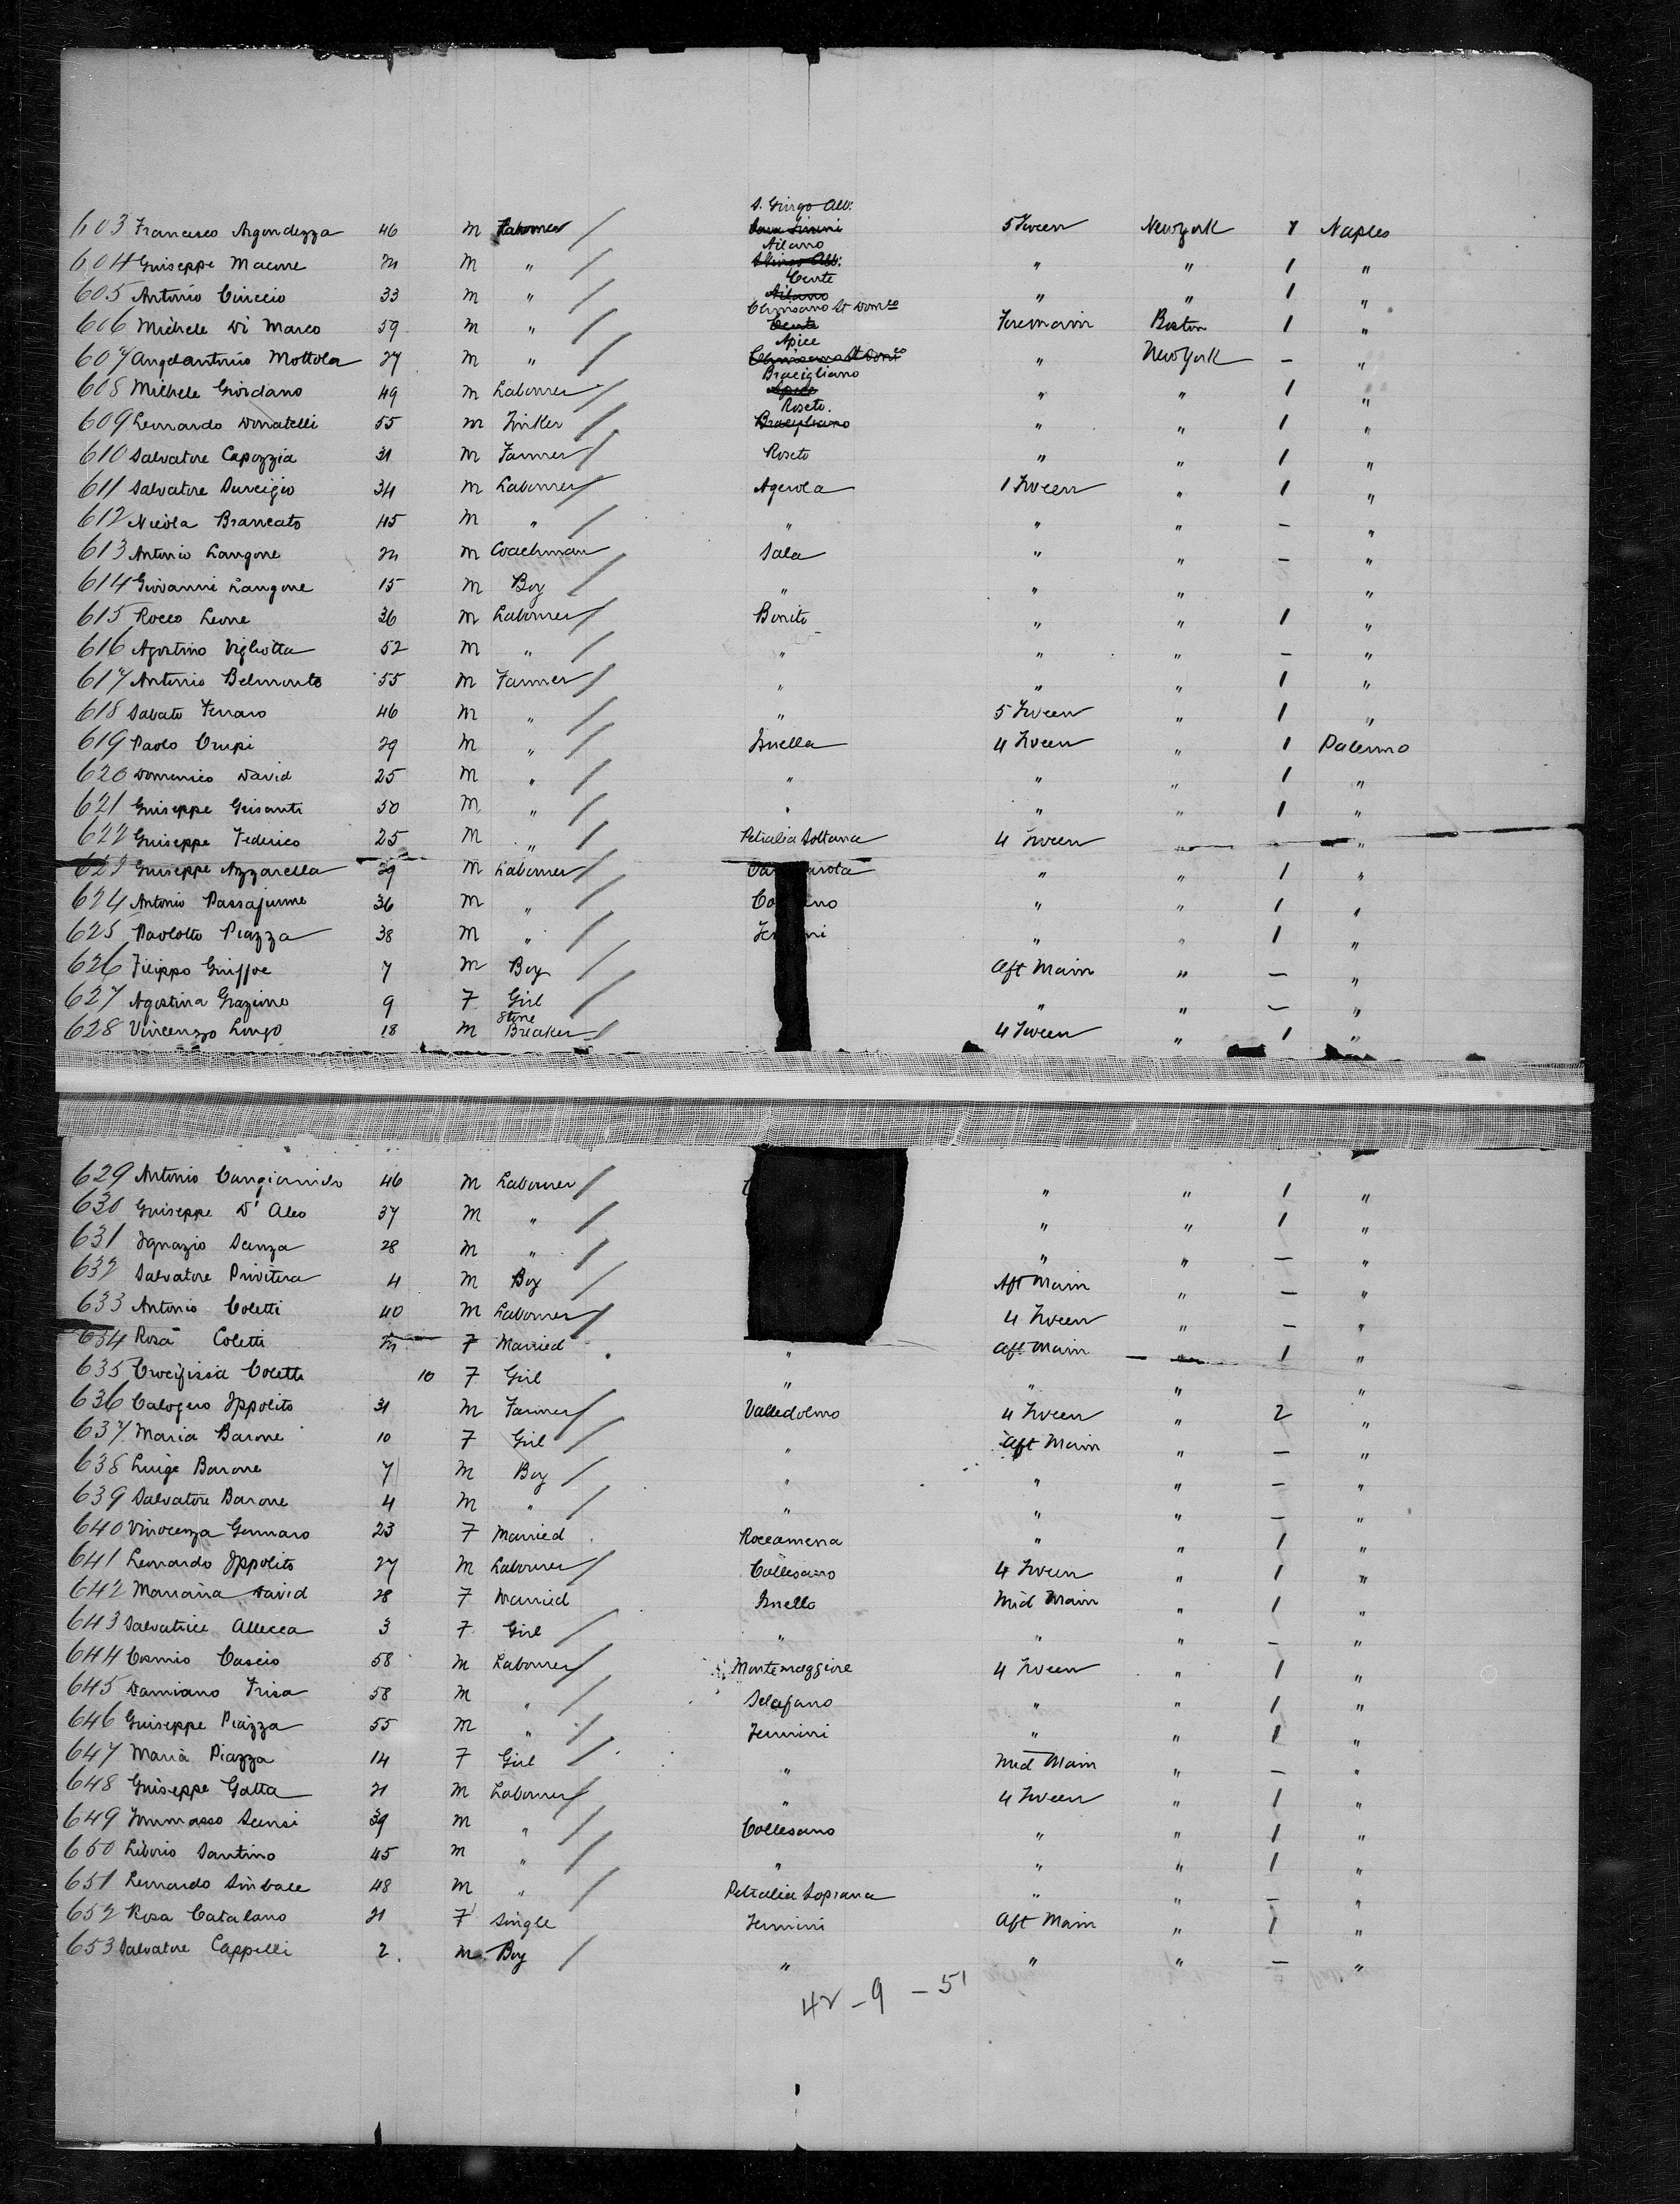 603 Francesco Argendezza 46 m Labourer / S. Giorgo Alb: 5 Tween New York 1 Naples
604 Giuseppe Macone m " / Ailano " " 1 "
605 Antonio Ciriccio 33 m " / Cente Ailano " " 1 "
606 Michele Di Marco 59 m " / Chrisano St Domco Cente Foremain Boston 1 "
607 Angelantonio Mottola 27 m " / Apice Chrisano St Domco " New York – "
608 Michele Giordano 49 m Labourer / Bracigliano Apice " " 1 "
609 Leonardo Donatelli 55 m Tinker / Roseto. Bracigliano " " 1 "
610 Salvatore Capozzia 31 m Farmer / Roseto " " 1 "
611 Salvatore 34 m Labourer / Agerola 1 Tween " 1 "
612 Nicola Brancato 45 m " / " " " – "
613 Antonio Langone m Coachman / Sala " " – "
614 Giovanni Langone 15 m Boy / " " " "
615 Rocco Leone 36 m Labourer / Bonito " " 1 "
616 Agostino Vigliotta 52 m " / " " " – "
617 Antonio Belmonto 55 m Farmer / " " " 1 "
618 Sabato Ferraro 46 m " / " 5 Tween " 1 "
619 Paolo Crupi 29 m " / Isnella 4 Tween " 1 Palermo
620 Domenico David 25 m " / " " " 1 "
621 Giuseppe Grisanti 50 m " / " " " 1 "
622 Giuseppe Federico 25 m " / Petralia Sottana 4 Tween "
623 Giuseppe Azzarella 29 m Labourer / " " 1 "
624 Antonio Passafiume 36 m " / " " 1 "
625 Paolotto Piazza 38 m " / " " 1 "
626 Filippo Giuffre 7 m Boy / Aft Main " – "
627 Agostina Graziano 9 F Girl / " " – "
628 Vincenzo Longo 18 m Stone Breaker / 4 Tween " 1 "
629 Antonio 46 m Labourer / " " 1 "
630 Giuseppe D'Aleo 37 m " / " " 1 "
631 Ignazio Scenza 28 m " / " " – "
632 Salvatore Privitera 4 m Boy / Aft Main " – "
633 Antonio Coletti 40 m Labourer / 4 Tween " – "
634 Rosa Coletti F Married " Aft Main 1 "
635 Crocifissa Coletti 10 F Girl " " " "
636 Calogero Ippolito 31 m Farmer / Valledolmo 4 Tween " 2 "
637 Maria Barone 10 F Girl / " Aft Main " – "
638 Luigi Barone 7 m Boy / " " " – "
639 Salvatore Barone 4 m " / " " " – "
640 Vincenza Gennaro 23 F Married Roccamena " " 1 "
641 Leonardo Ippolito 27 m Labourer / Collesano 4 Tween " 1 "
642 Mariana David 28 F Married Isnello Mid Main " 1 "
643 Salvatrice Allecca 3 F Girl / " " " – "
644 Cosmio Cascio 58 m Labourer / Montemaggiore 4 Tween " 1 "
645 Damiano Frisa 58 m " / Sclafano " " 1 "
646 Giuseppe Piazza 55 m " / Termini " " 1 "
647 Maria Piazza 14 F Girl / " Mid Main " – "
648 Giuseppe Gatta 21 m Labourer / " 4 Tween " 1 "
649 Tommasso Scensi 39 m " / Collesano " " 1 "
650 Liborio Santino 45 m " / " " " 1 "
651 Leonardo 48 m " / Petralia Soprana " " – "
652 Rosa Catalano 21 F Single Termini Aft Main " 1 "
653 Salvatore Cappelli 2. m Boy / " " " – "
42 – 9 – 51